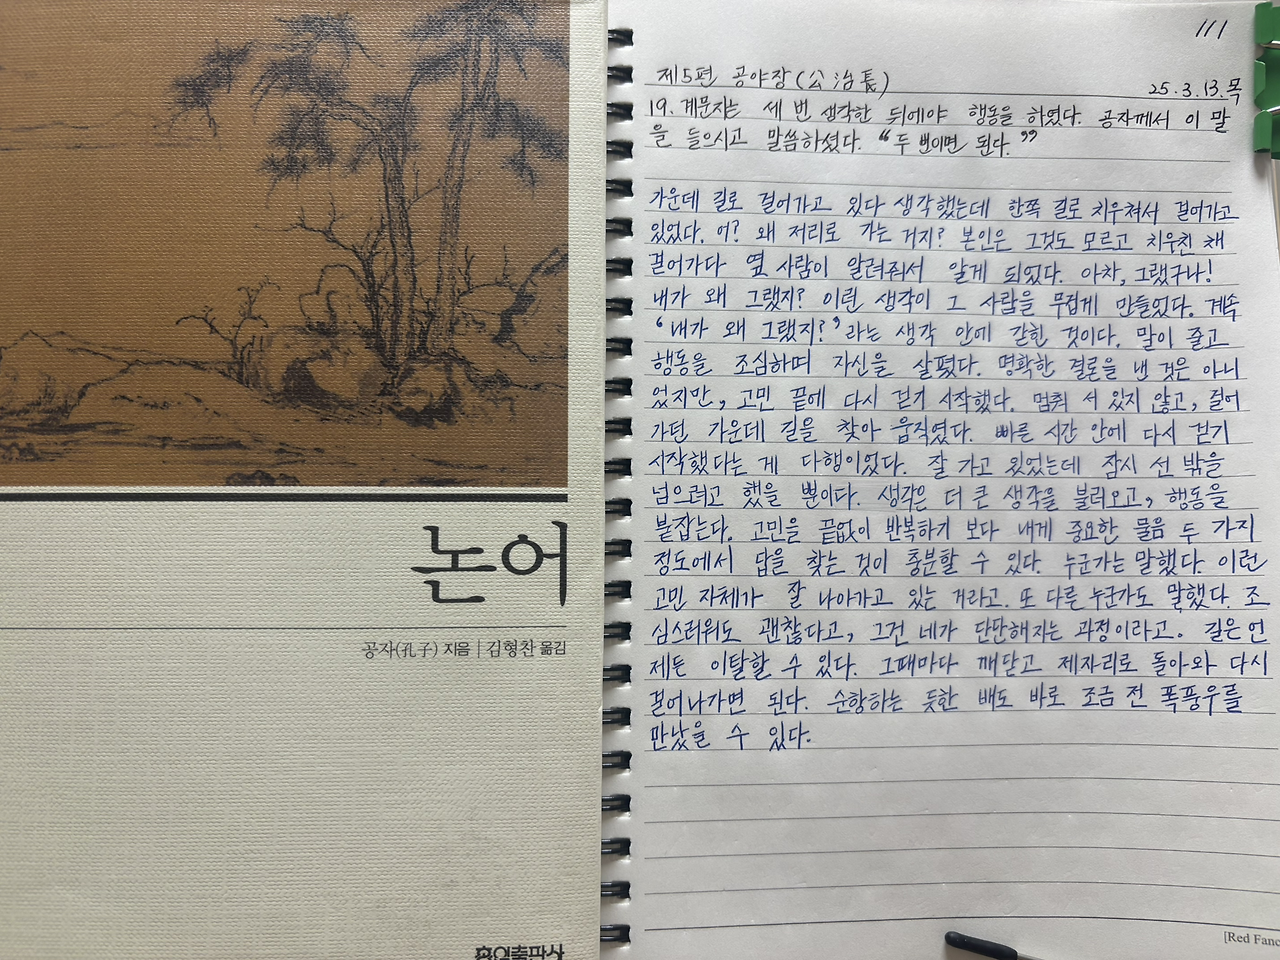 논어
공자(孔子) 지음 | 김형찬 옮김
홍익출판사
111
제5편 공야장(公冶長)
25.3.13.목
19. 계문자는 세 번 생각한 뒤에야 행동을 하였다. 공자께서 이 말
을 들으시고 말씀하셨다. "두 번이면 된다."
가운데 길로 걸어가고 있다 생각했는데 한쪽 길로 치우쳐서 걸어가고
있었다. 어? 왜 저리로 가는 거지? 본인은 그것도 모르고 치우친 채
걸어가다 옆 사람이 알려줘서 알게 되었다. 아차, 그랬구나!
내가 왜 그랬지? 이런 생각이 그 사람을 무겁게 만들었다. 계속
'내가 왜 그랬지?'라는 생각 안에 갇힌 것이다. 말이 줄고
행동을 조심하며 자신을 살폈다. 명확한 결론을 낸 것은 아니
었지만, 고민 끝에 다시 걷기 시작했다. 멈춰 서 있지 않고, 걸어
가던 가운데 길을 찾아 움직였다. 빠른 시간 안에 다시 걷기
시작했다는 게 다행이었다. 잘 가고 있었는데 잠시 선 밖을
넘으려고 했을 뿐이다. 생각은 더 큰 생각을 불러오고, 행동을
붙잡는다. 고민을 끝없이 반복하기 보다 내게 중요한 물음 두 가지
정도에서 답을 찾는 것이 충분할 수 있다. 누군가는 말했다. 이런
고민 자체가 잘 나아가고 있는 거라고. 또 다른 누군가도 말했다. 조
심스러워도 괜찮다고, 그건 네가 단단해지는 과정이라고. 길은 언
제든 이탈할 수 있다. 그때마다 깨닫고 제자리로 돌아와 다시
걸어나가면 된다. 순항하는 듯한 배도 바로 조금 전 폭풍우를
만났을 수 있다.
[Red Fanc